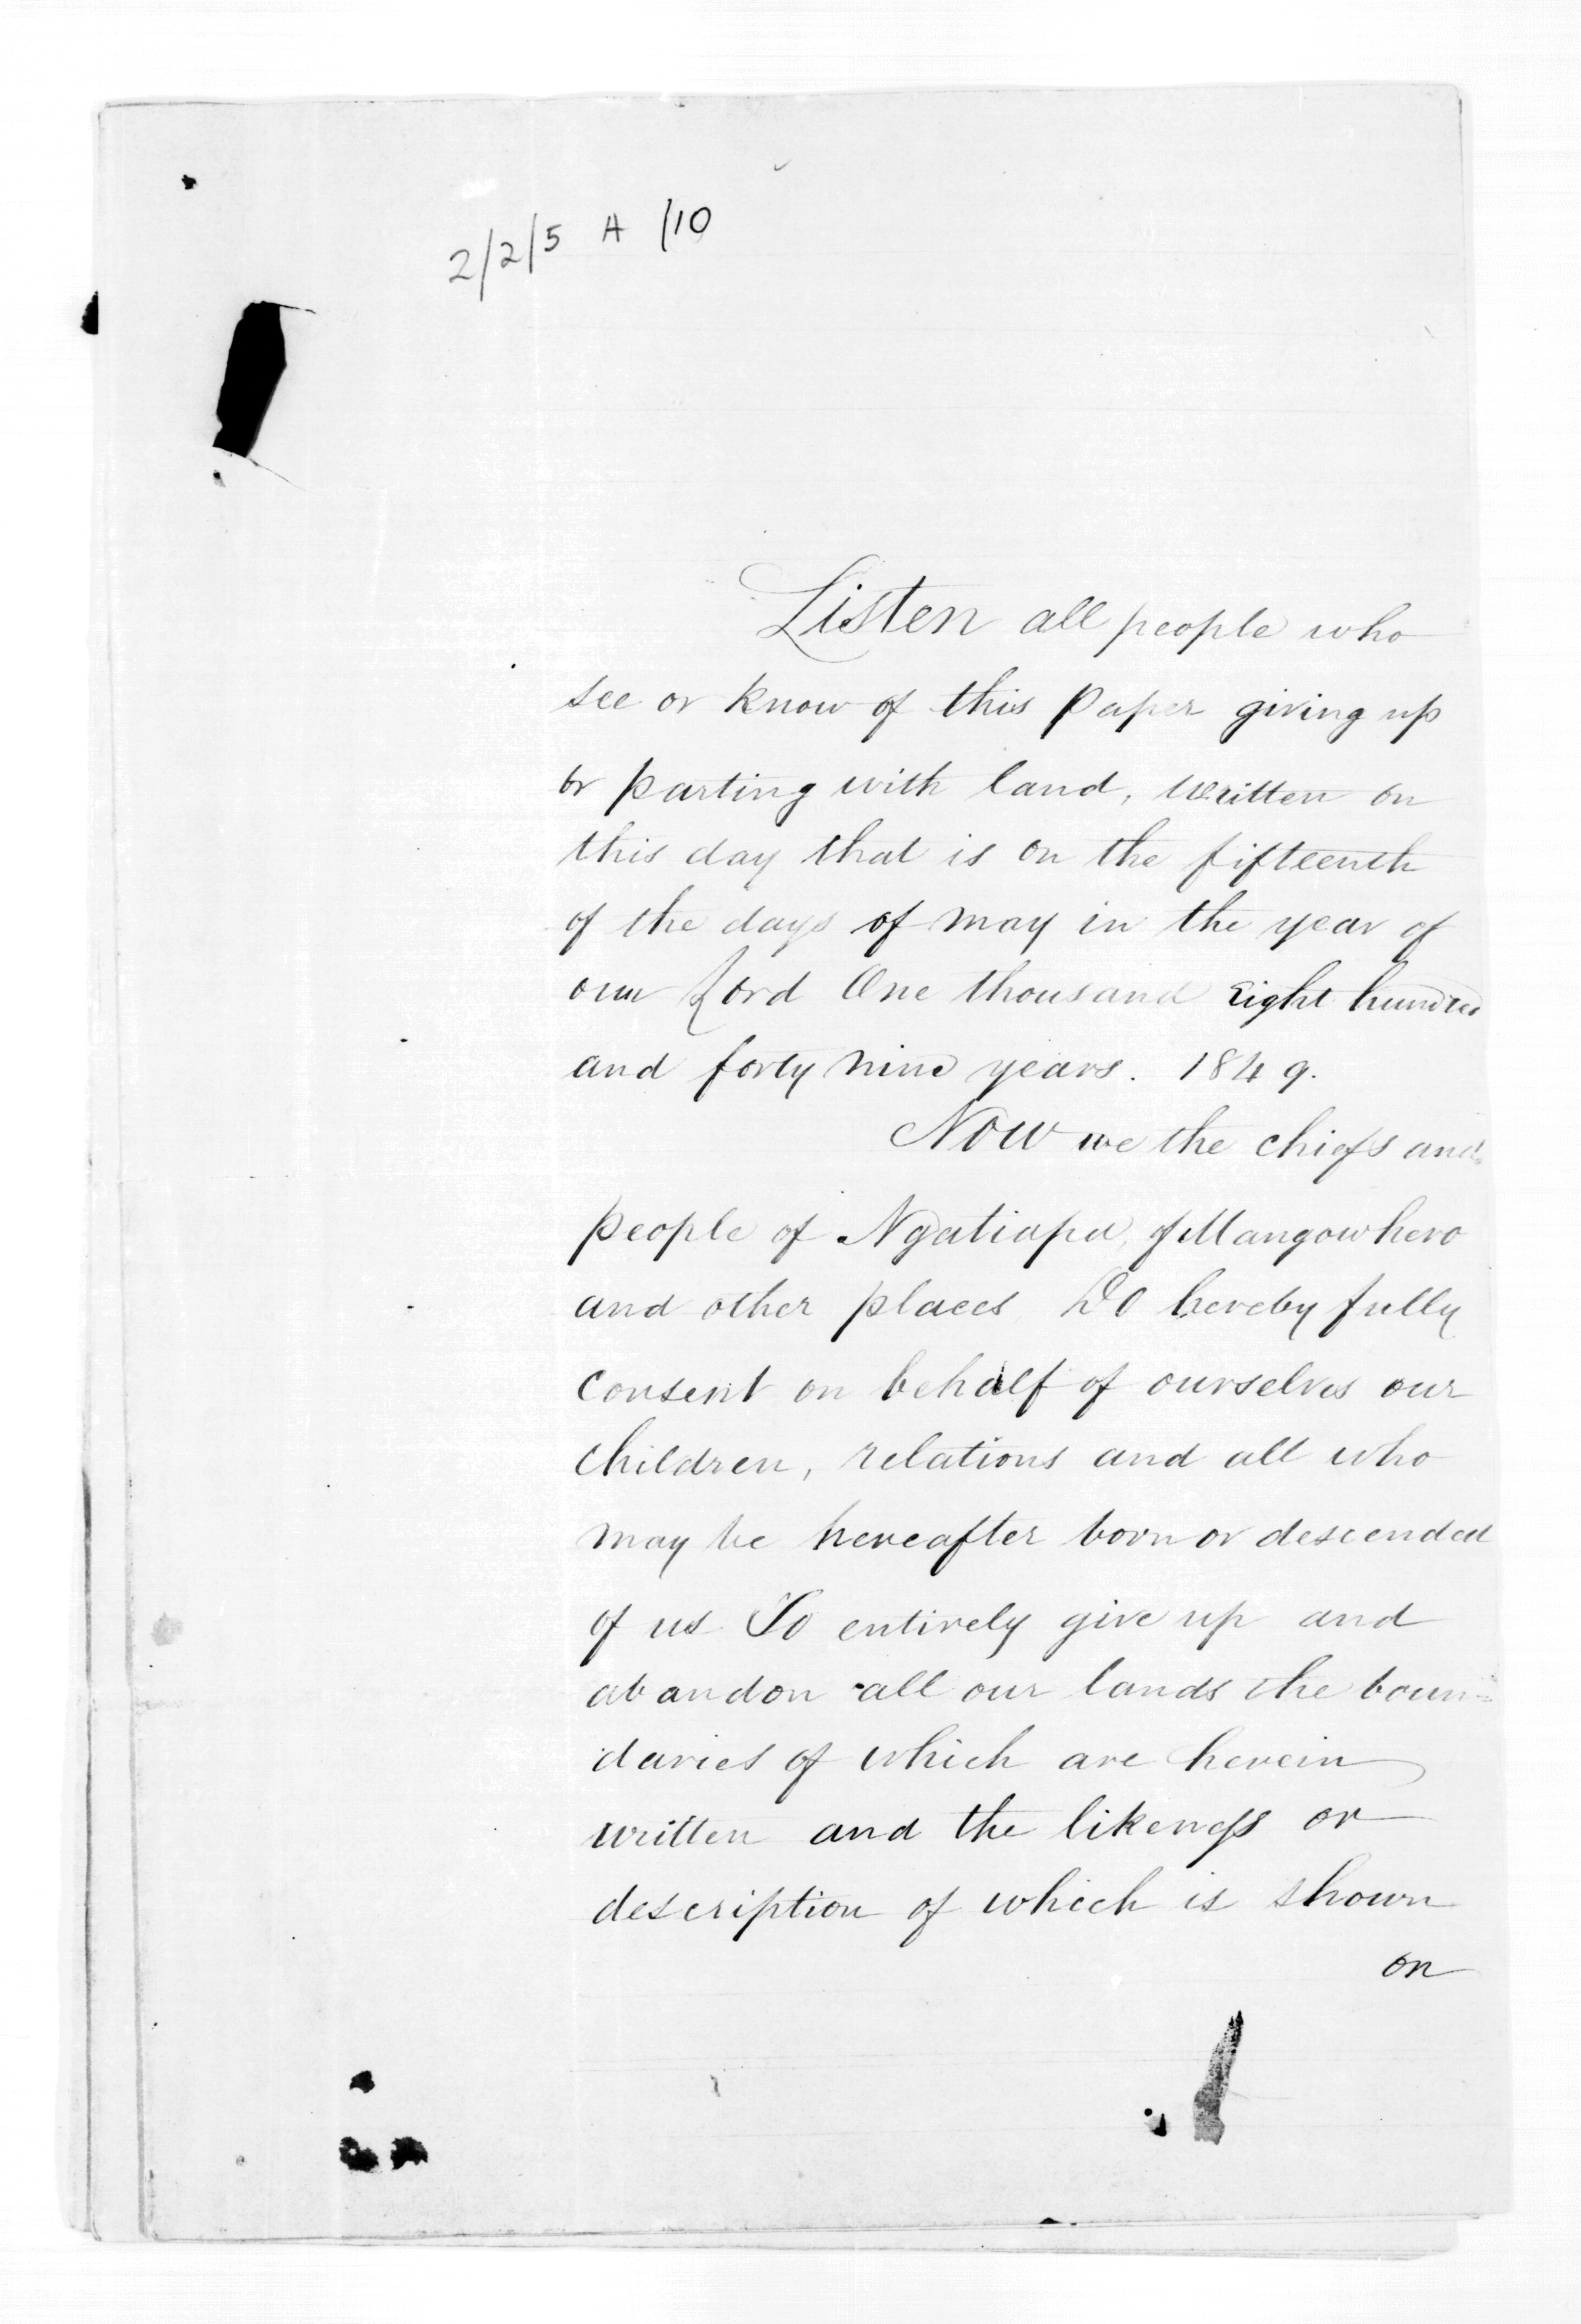 2/2/5 A /10
Listen all people who
see or know of this Paper giving up
or parting with land, written on
this day that is on the fifteenth
of the days of May in the year of
our Lord One thousand Eight hundred
and forty nine years. 1849.
Now we the chiefs and
people of Ngatiapa, of Mangowhero
and other places Do hereby fully
consent on behalf of ourselves our
children, relations and all who
may be hereafter born or descended
of us To entirely give up and
abandon all our lands the boun=
daries of which are herein
written and the likeness or
description of which is shown
on